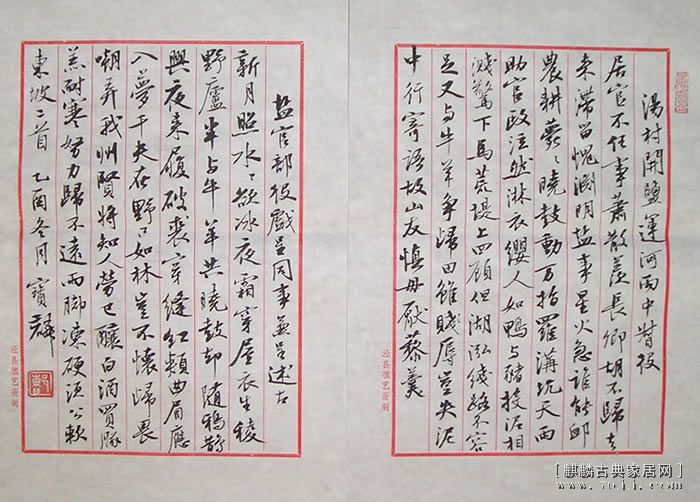 湯村開鹽運河雨中督役
居官不任事蕭散羨長卿胡不歸去
来滯留愧淵明盐事星火急誰能卹
農耕薨々曉鼓動万指羅溝坑天雨
助官政泫然淋衣纓人如鴨与豬投泥相
濺驚下馬荒堤上四顧但湖泓线路不容
足又与牛羊爭歸田雖賤辱豈失泥
中行寄语故山友慎毋厭藜羹
盐官部役戲呈同事兼呈述古
新月照水々欲冰夜霜穿屋衣生稜
野廬半与牛羊共曉鼓却随鴉鵲
興夜来履破裘穿縫红颊曲眉應
入夢千夫在野口如林豈不懷歸畏
嘲弄我州賢将知人勞已釀白酒買豚
羔耐寒努力歸不遠兩脚凍硬须公軟
東坡二首 乙酉冬月 寶麟
[麒麟古典家居网]